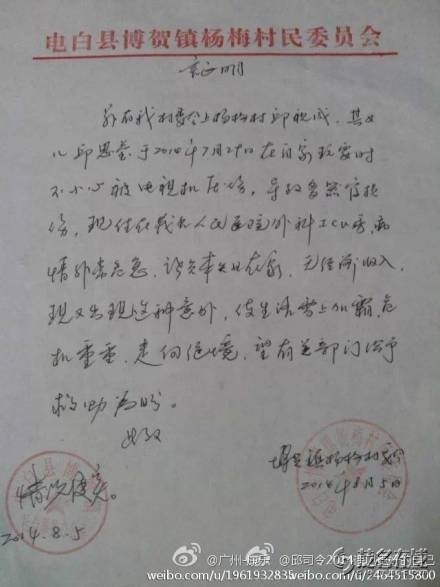 电白县博贺镇杨梅村民委员会
证明
兹有我村委会上杨梅村邱祝成,其女
儿邱思莹于2014年7月28日在自家玩耍时
不小心被电视机压伤,导致多处
伤,现住在茂名人民医院外科ICU房,病
情非常危急,务农,无经济收入,
现又出现这种意外,使生活雪上加霜,危
机重重,走向绝境,望有关部门给予
救助为盼。
此致
博贺镇杨梅村委会
2014年8月5日
情况属实。
2014.8.5
@广州
weibo.com/u/1961932835
weibo.com/u/2464515800